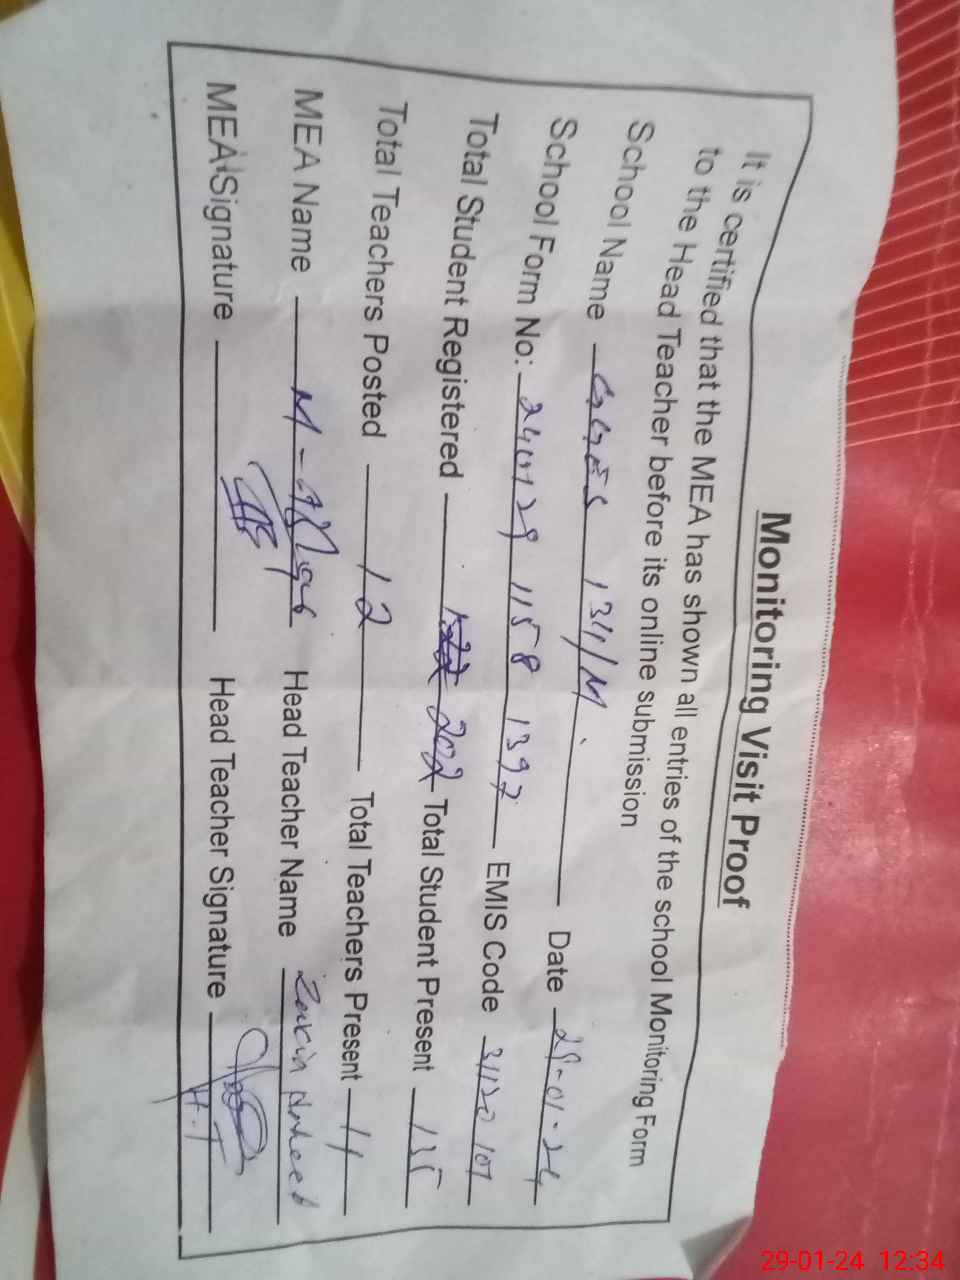 Monitoring Visit Proof
It is certified that the MEA has shown all entries of the school Monitoring Form
to the Head Teacher before its online submission
School Name GGES 134/M Date 29-01-24
School Form No: 240129 1158 1397 EMIS Code 31120107
Total Student Registered 202 Total Student Present 135
Total Teachers Posted 12 Total Teachers Present 11
MEA Name M - Head Teacher Name
MEA Signature Head Teacher Signature
H.T
29-01-24 12:34